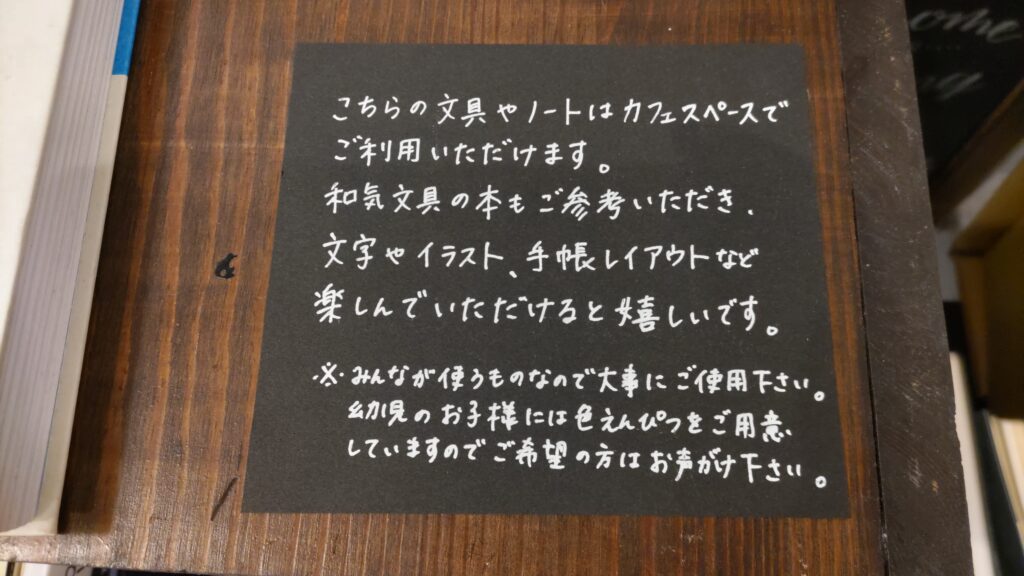 こちらの文具やノートはカフェスペースで
ご利用いただけます。
和気文具の本もご参考いただき、
文字やイラスト、手帳レイアウトなど
楽しんでいただけると嬉しいです。
※みんなが使うものなので大事にご使用下さい。
幼児のお子様には色えんぴつをご用意
していますのでご希望の方はお声がけ下さい。